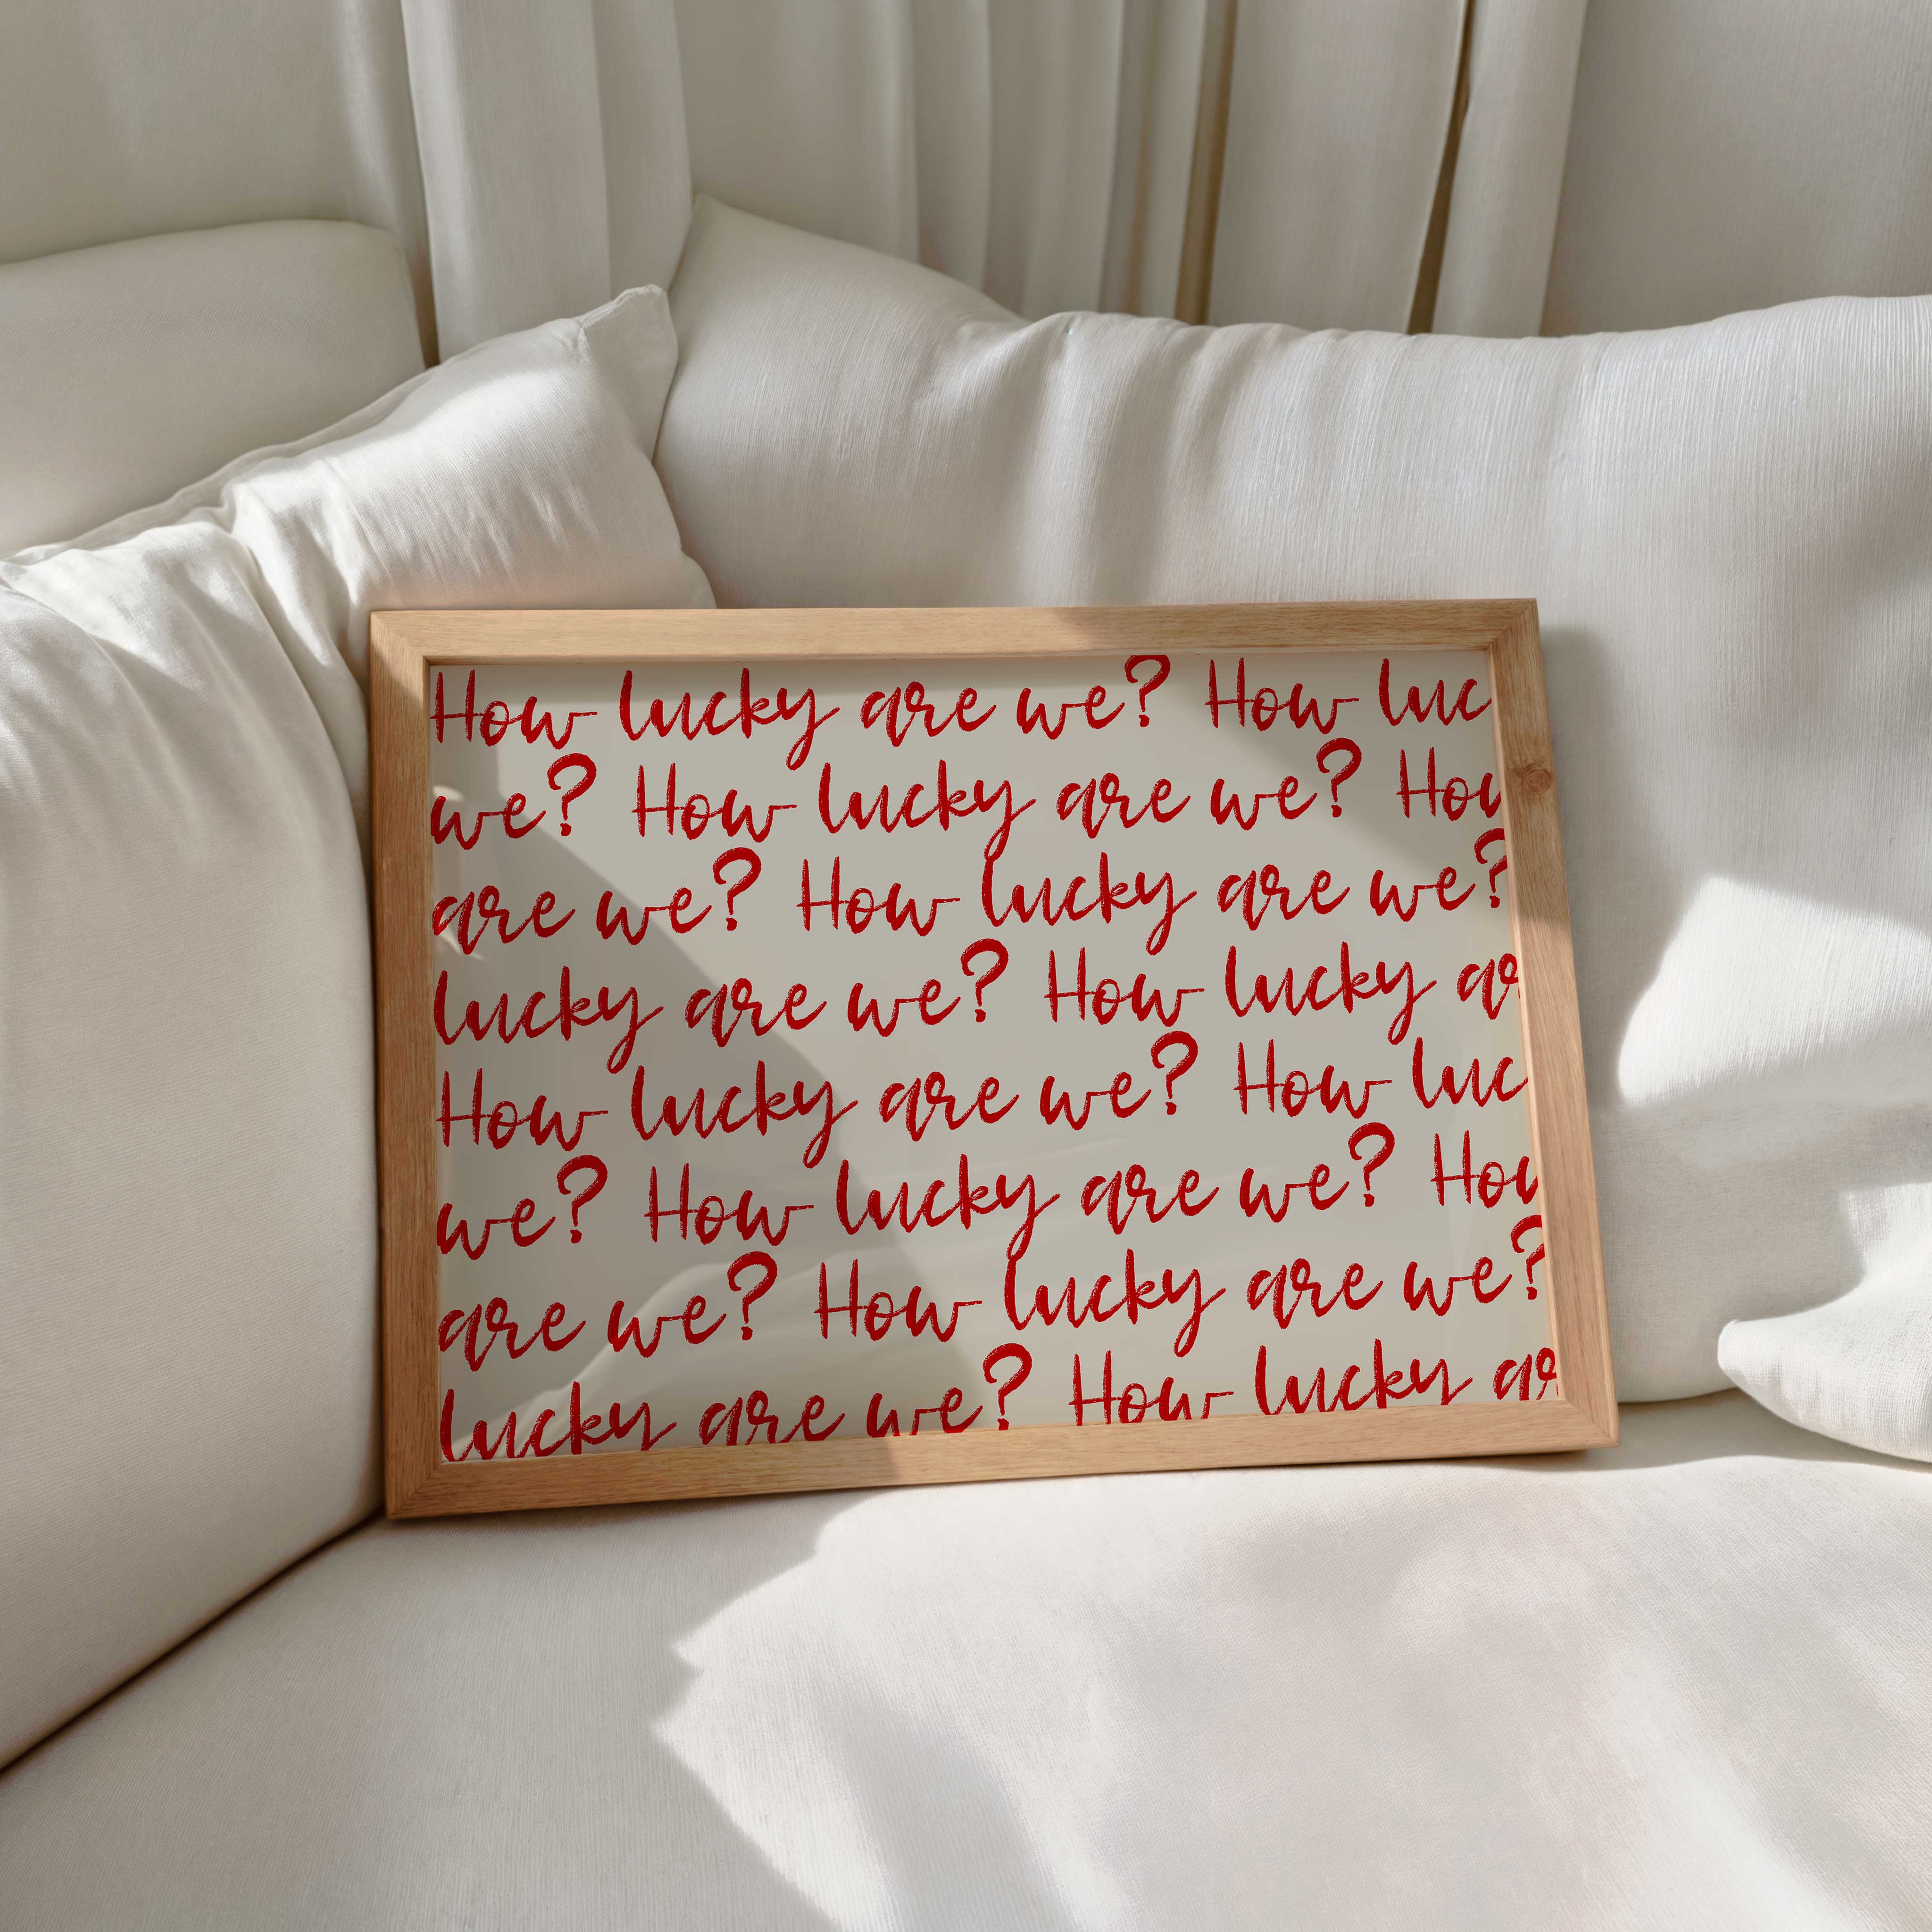 How lucky are we? How luc
we? How lucky are we? How
are we? How lucky are we?
lucky are we? How lucky ar
How lucky are we? How luc
we? How lucky are we? How
are we? How lucky are we?
lucky are we? How lucky ar